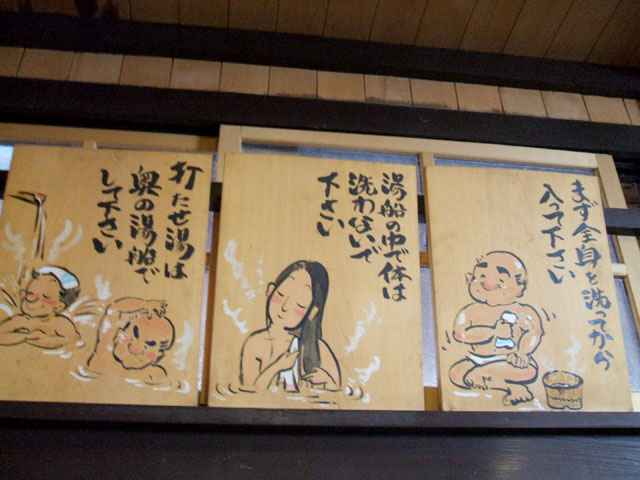 まず全身を洗ってから
入って下さい
湯船の中で体は
洗わないで
下さい
打たせ湯は
奥の湯船で
して下さい